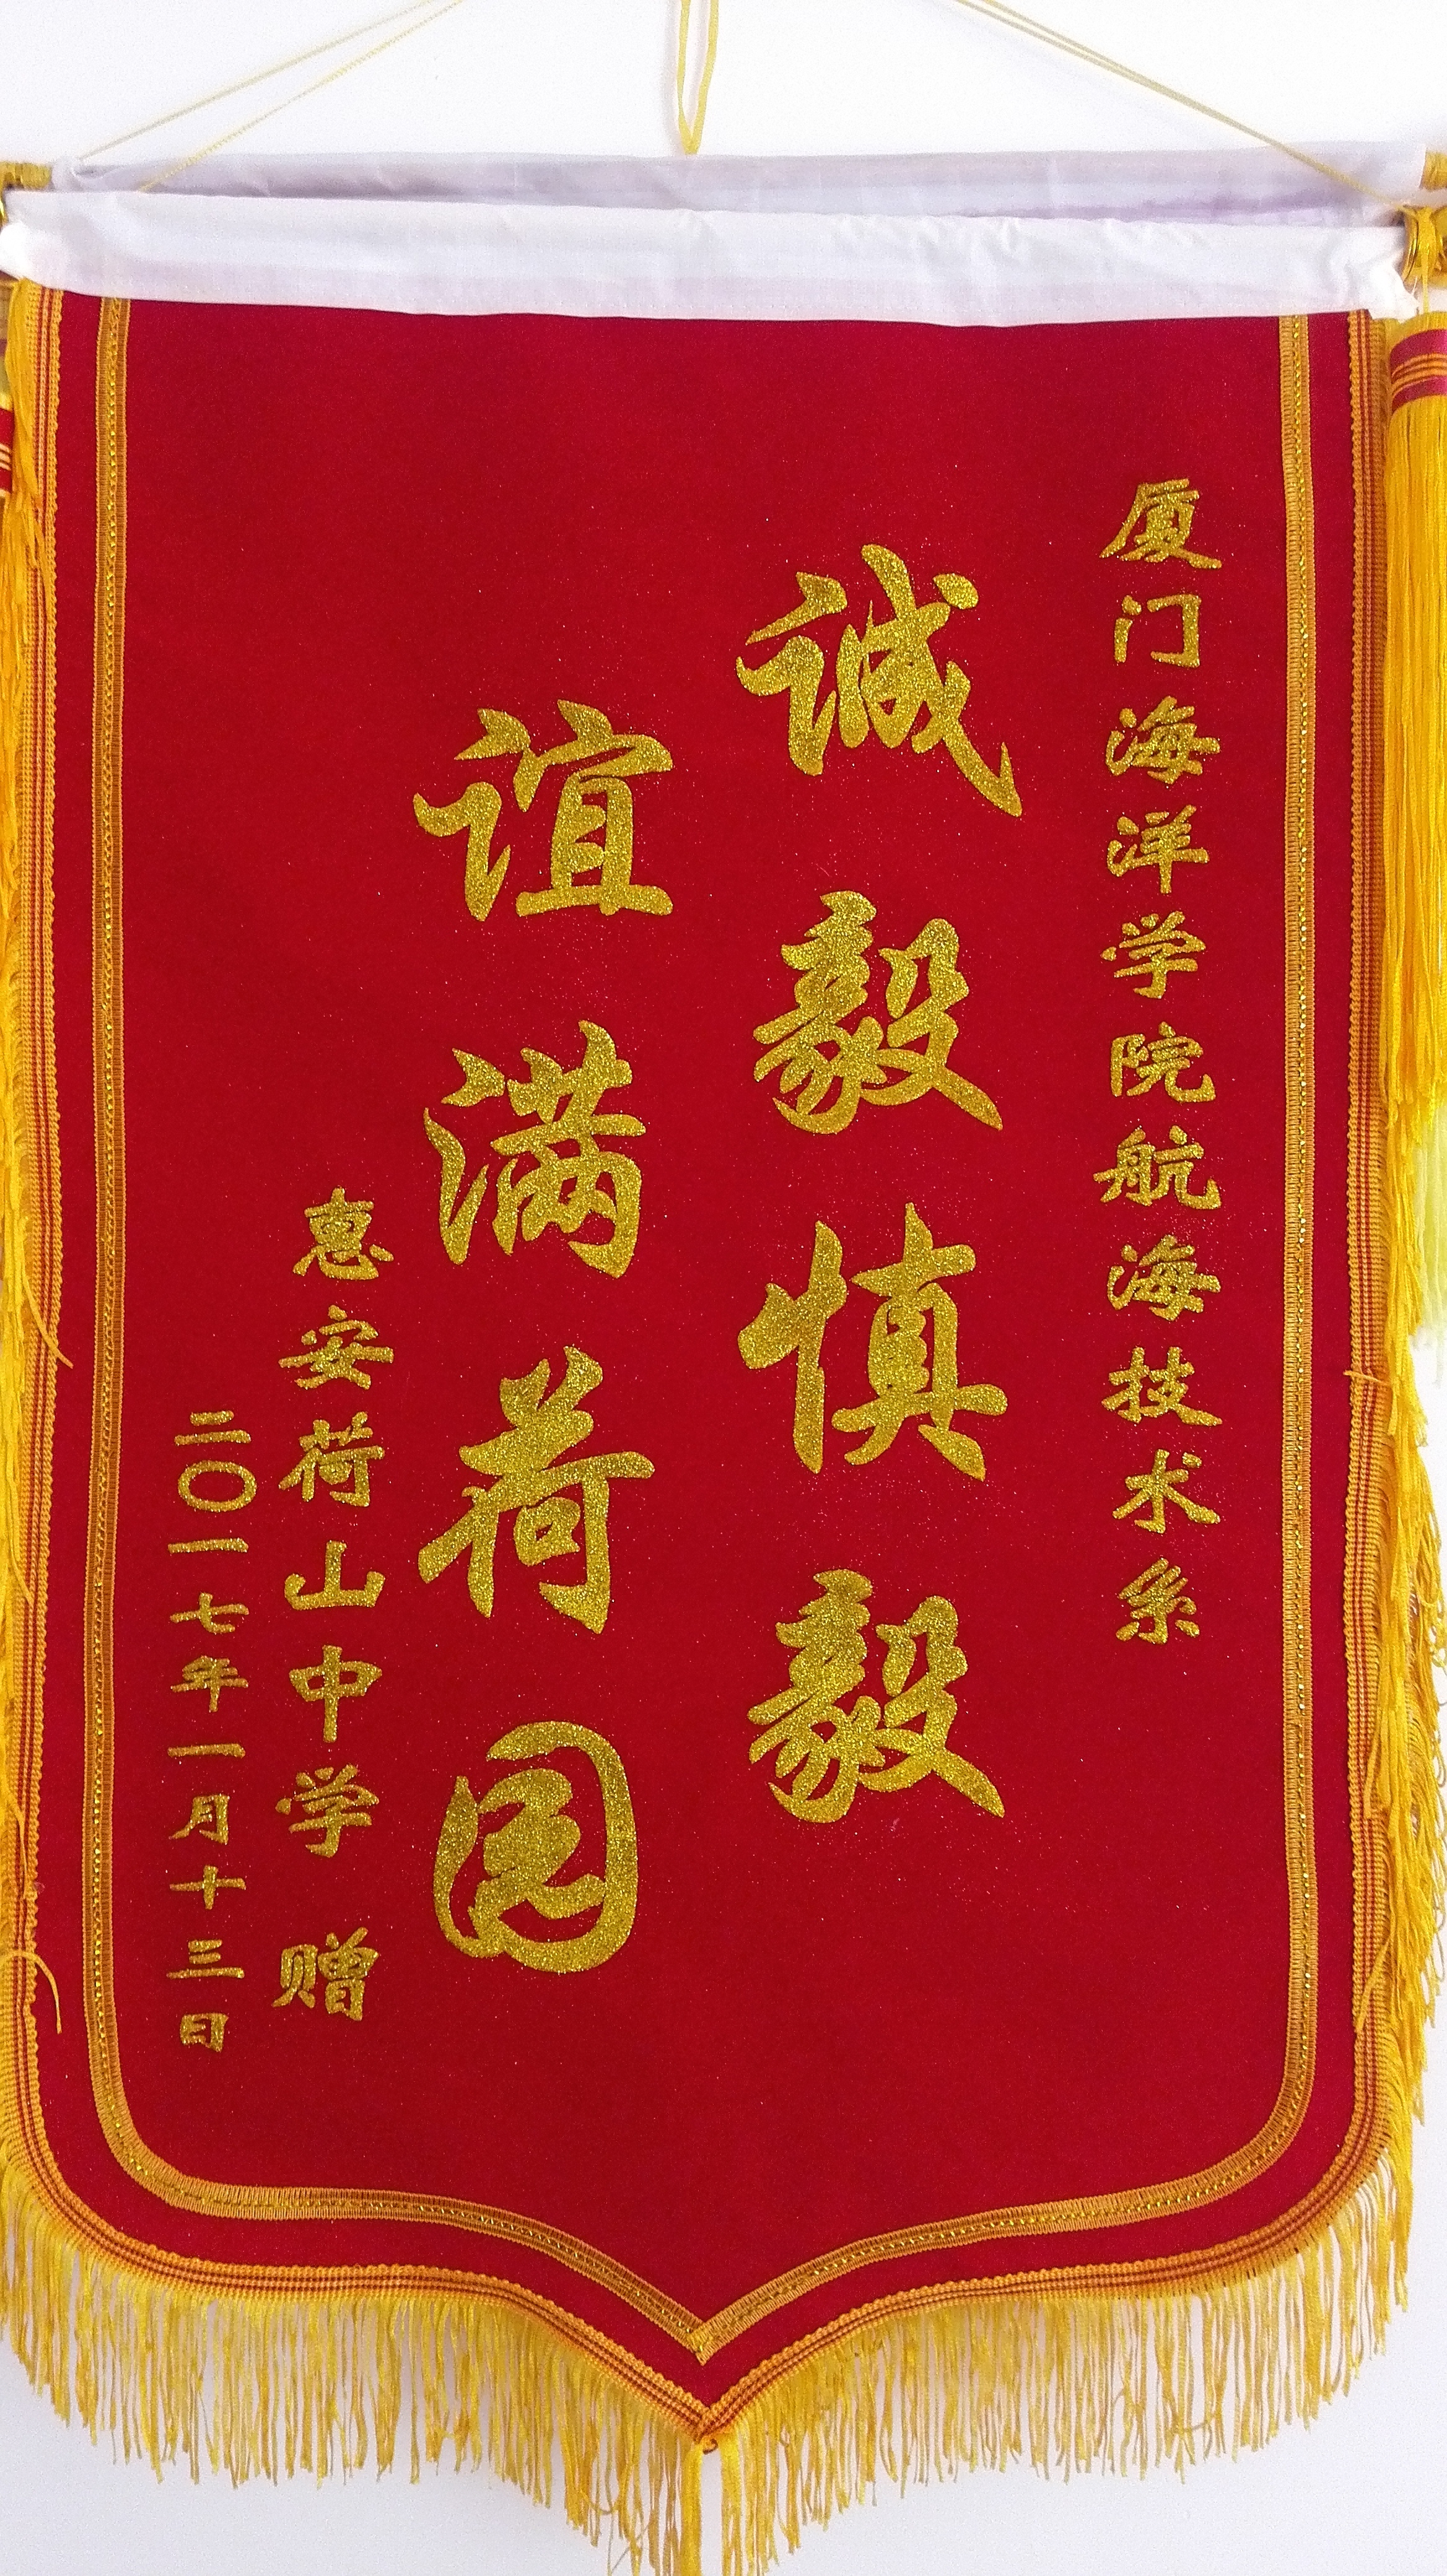 厦门海洋学院航海技术系
诚毅慎毅
谊满荷园
惠安荷山中学 赠
二〇一七年一月十三日